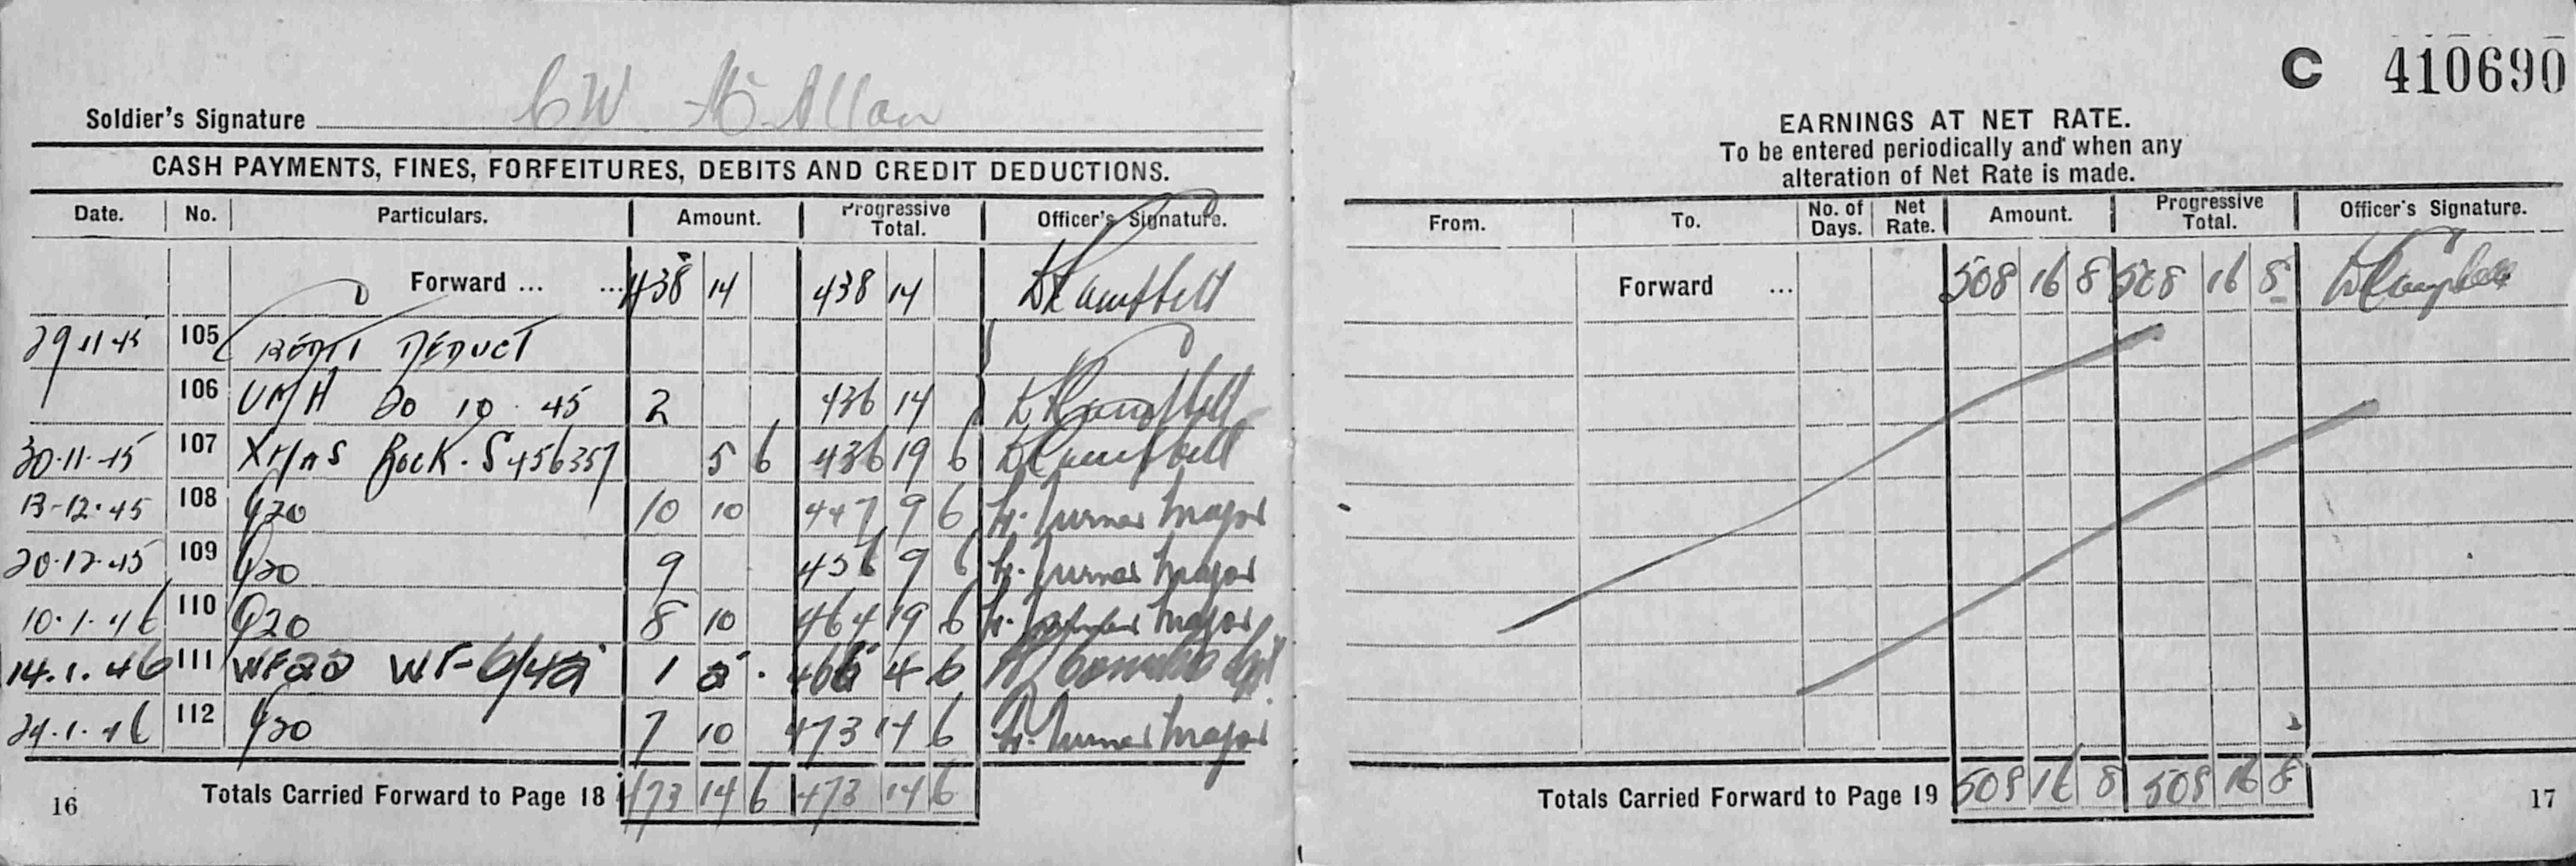 C 410690
Soldier's Signature CW McAllan
CASH PAYMENTS, FINES, FORFEITURES, DEBITS AND CREDIT DEDUCTIONS.
Date. No. Particulars. Amount. Progressive Total. Officer's Signature.
Forward ... ... 438 14 438 14 Campbell
29.11.45 105 DEDUCT
106 20 10 45 2 436 14 Campbell
30.11.45 107 Xmas Rock. S456357 5 6 436 19 6 Campbell
13-12.45 108 Q20 10 10 447 9 6 H. Turner Major
20.12.45 109 Q20 9 456 9 6 H. Turner Major
10.1.46 110 Q20 8 10 464 19 6 H. Major
14.1.46 111 1 5 466 4 6
24.1.46 112 Q20 7 10 473 14 6 H. Turner Major
Totals Carried Forward to Page 18 473 14 6 473 14 6
16
EARNINGS AT NET RATE.
To be entered periodically and when any
alteration of Net Rate is made.
From. To. No. of Days. Net Rate. Amount. Progressive Total. Officer's Signature.
Forward ... 508 16 8 508 16 8 Campbell
Totals Carried Forward to Page 19 508 16 8 508 16 8
17